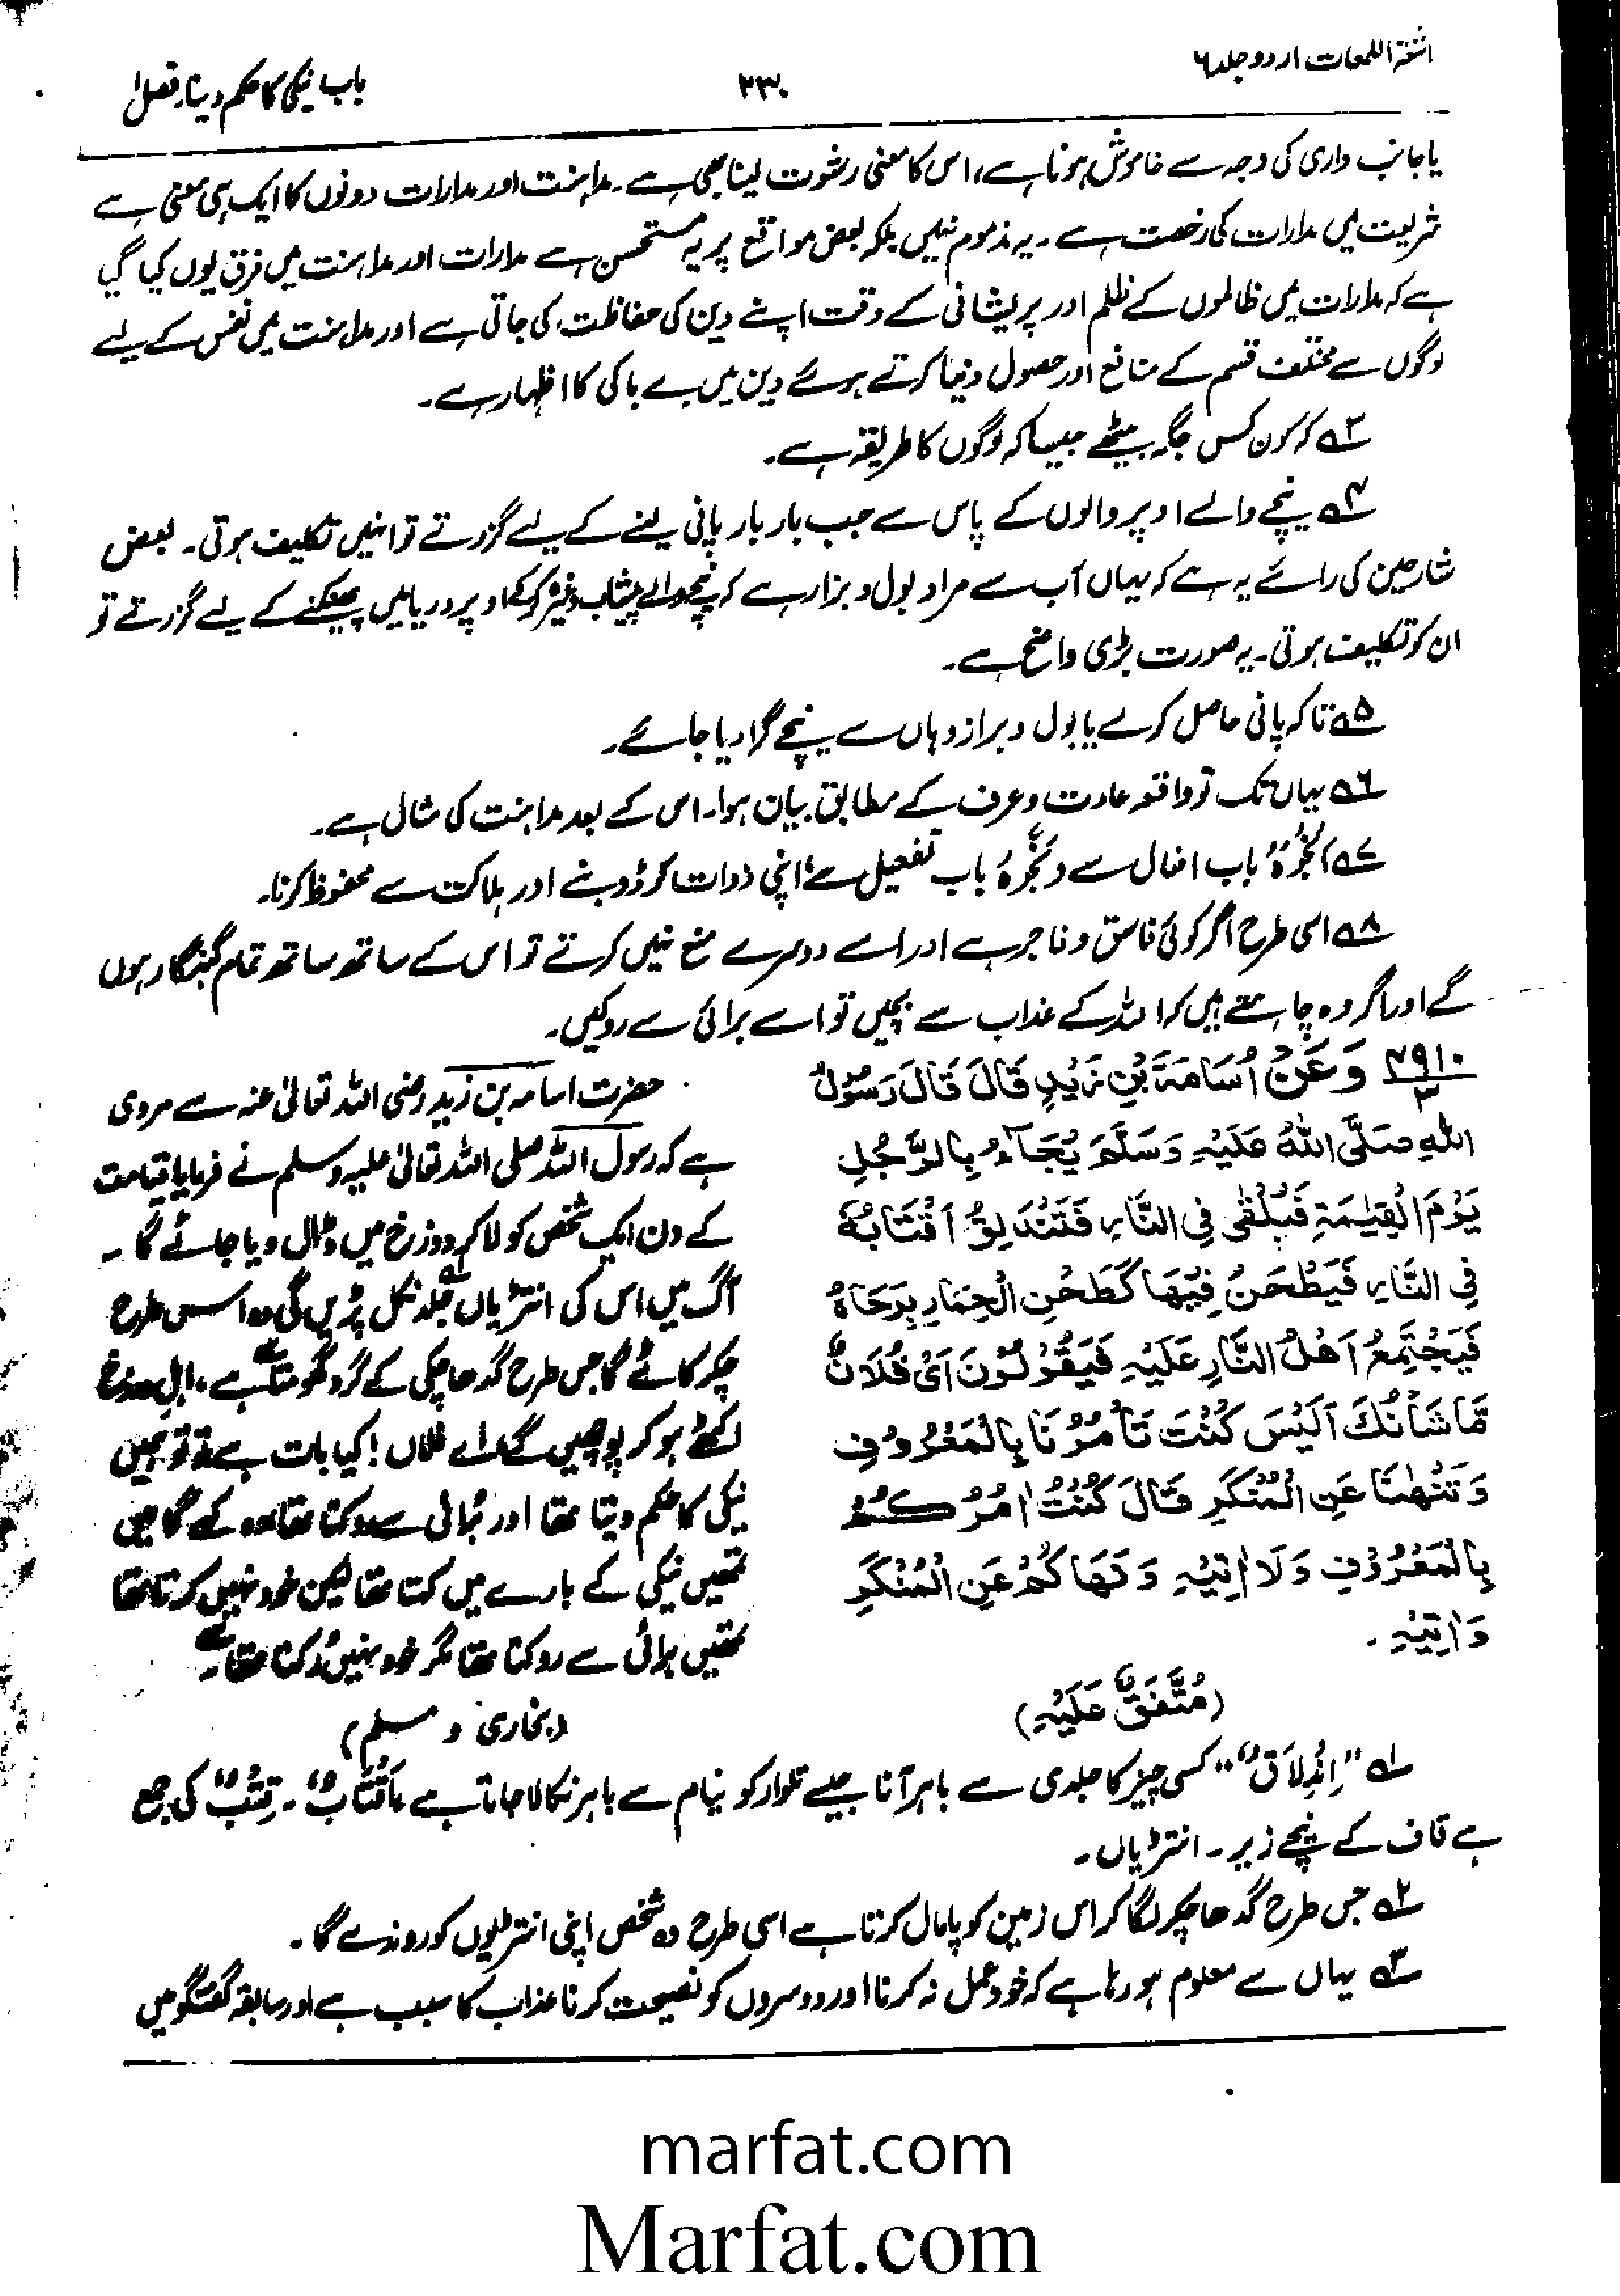 اشعۃ اللمعات اردو جلد ۶
۲۳۰
باب نیکی کا حکم دینا، فصل ۱
یا جانب داری کی وجہ سے خاموش ہونا ہے، اس کا معنی رشوت لینا بھی ہے۔ مداہنت اور مدارات دونوں کا ایک ہی معنی ہے
شریعت میں مدارات کی رخصت ہے۔ یہ مذموم نہیں بلکہ بعض مواقع پر یہ مستحسن ہے مدارات اور مداہنت میں فرق یوں کیا گیا
ہے کہ مدارات میں ظالموں کے ظلم اور پریشانی کے وقت اپنے دین کی حفاظت کی جاتی ہے اور مداہنت میں نفس کے لیے
لوگوں سے مختلف قسم کے منافع اور حصول دنیا کرتے ہوئے دین میں بے باکی کا اظہار ہے۔
۳؎ کہ کون کس جگہ بیٹھے جیسا کہ لوگوں کا طریقہ ہے۔
۴؎ نیچے والے اوپر والوں کے پاس سے جب بار بار پانی لینے کے لیے گزرتے تو انہیں تکلیف ہوتی۔ بعض
شارحین کی رائے یہ ہے کہ یہاں آب سے مراد بول و براز ہے کہ نیچے والے پیشاب وغیرہ کو اوپر دریا میں پھینکنے کے لیے گزرتے تو
ان کو تکلیف ہوتی۔ یہ صورت بڑی واضح ہے۔
۵؎ تاکہ پانی حاصل کرے یا بول و براز وہاں سے نیچے گرا دیا جائے۔
۶؎ یہاں تک تو واقعہ عادت و عرف کے مطابق بیان ہوا۔ اس کے بعد مداہنت کی مثال ہے۔
۷؎ اَنْجَوْہُ باب افعال سے و نَجَّوْہُ باب تفعیل سے؛ اپنی ذوات کو ڈوبنے اور ہلاکت سے محفوظ کرنا۔
۸؎ اسی طرح اگر کوئی فاسق و فاجر ہے اور اسے دوسرے منع نہیں کرتے تو اس کے ساتھ ساتھ تمام گنہگار ہوں
گے اور اگر وہ چاہتے ہیں کہ اللہ کے عذاب سے بچیں تو اسے برائی سے روکیں۔
۴۹۱۰/۳ وَعَنْ اُسَامَةَ بْنِ زَيْدٍ قَالَ قَالَ رَسُوْلُ
اللهِ صَلَّى اللهُ عَلَيْهِ وَسَلَّمَ يُجَآءُ بِالرَّجُلِ
يَوْمَ الْقِيٰمَةِ فَيُلْقٰى فِى النَّارِ فَتَنْدَلِقُ اَقْتَابُهٗ
فِى النَّارِ فَيَطْحَنُ فِيْهَا كَطَحْنِ الْحِمَارِ بِرَحَاهُ
فَيَجْتَمِعُ اَهْلُ النَّارِ عَلَيْهِ فَيَقُوْلُوْنَ اَىْ فُلَانُ
مَا شَاْنُكَ اَلَيْسَ كُنْتَ تَاْمُرُنَا بِالْمَعْرُوْفِ
وَتَنْهٰنَا عَنِ الْمُنْكَرِ قَالَ كُنْتُ اٰمُرُكُمْ
بِالْمَعْرُوْفِ وَلَا اٰتِيْهِ وَ نَهَاكُمْ عَنِ الْمُنْكَرِ
وَاٰتِيْهِ .
(مُتَّفَقٌ عَلَيْهِ)
حضرت اسامہ بن زید رضی اللہ تعالیٰ عنہ سے مروی
ہے کہ رسول اللہ صلی اللہ تعالیٰ علیہ وسلم نے فرمایا قیامت
کے دن ایک شخص کو لا کر دوزخ میں ڈال دیا جائے گا۔
آگ میں اس کی انتڑیاں جلد نکل پڑیں گی وہ اس طرح
چکر کاٹے گا جس طرح گدھا چکی کے گرد گھومتا ہے، اہل دوزخ
اکٹھے ہو کر پوچھیں گے اے فلاں! کیا بات ہے تو تو ہمیں
نیکی کا حکم دیتا تھا اور برائی سے روکتا تھا وہ کہے گا میں
تمھیں نیکی کے بارے میں کہتا تھا لیکن خود نہیں کرتا تھا
تمھیں برائی سے روکتا تھا مگر خود نہیں رُکتا تھا۔
(بخاری و مسلم)
۱؎ "اِنْدِلَاقٌ" کسی چیز کا جلدی سے باہر آنا جیسے تلوار کو نیام سے باہر نکالا جاتا ہے "اَقْتَابٌ"۔ "قِتْبٌ" کی جمع
ہے قاف کے نیچے زیر۔ انتڑیاں۔
۲؎ جس طرح گدھا چکر لگا کر اس زمین کو پامال کرتا ہے اسی طرح وہ شخص اپنی انتڑیوں کو روندے گا۔
۳؎ یہاں سے معلوم ہو رہا ہے کہ خود عمل نہ کرنا اور دوسروں کو نصیحت کرنا عذاب کا سبب ہے اور سابقہ گفتگو میں
marfat.com
Marfat.com